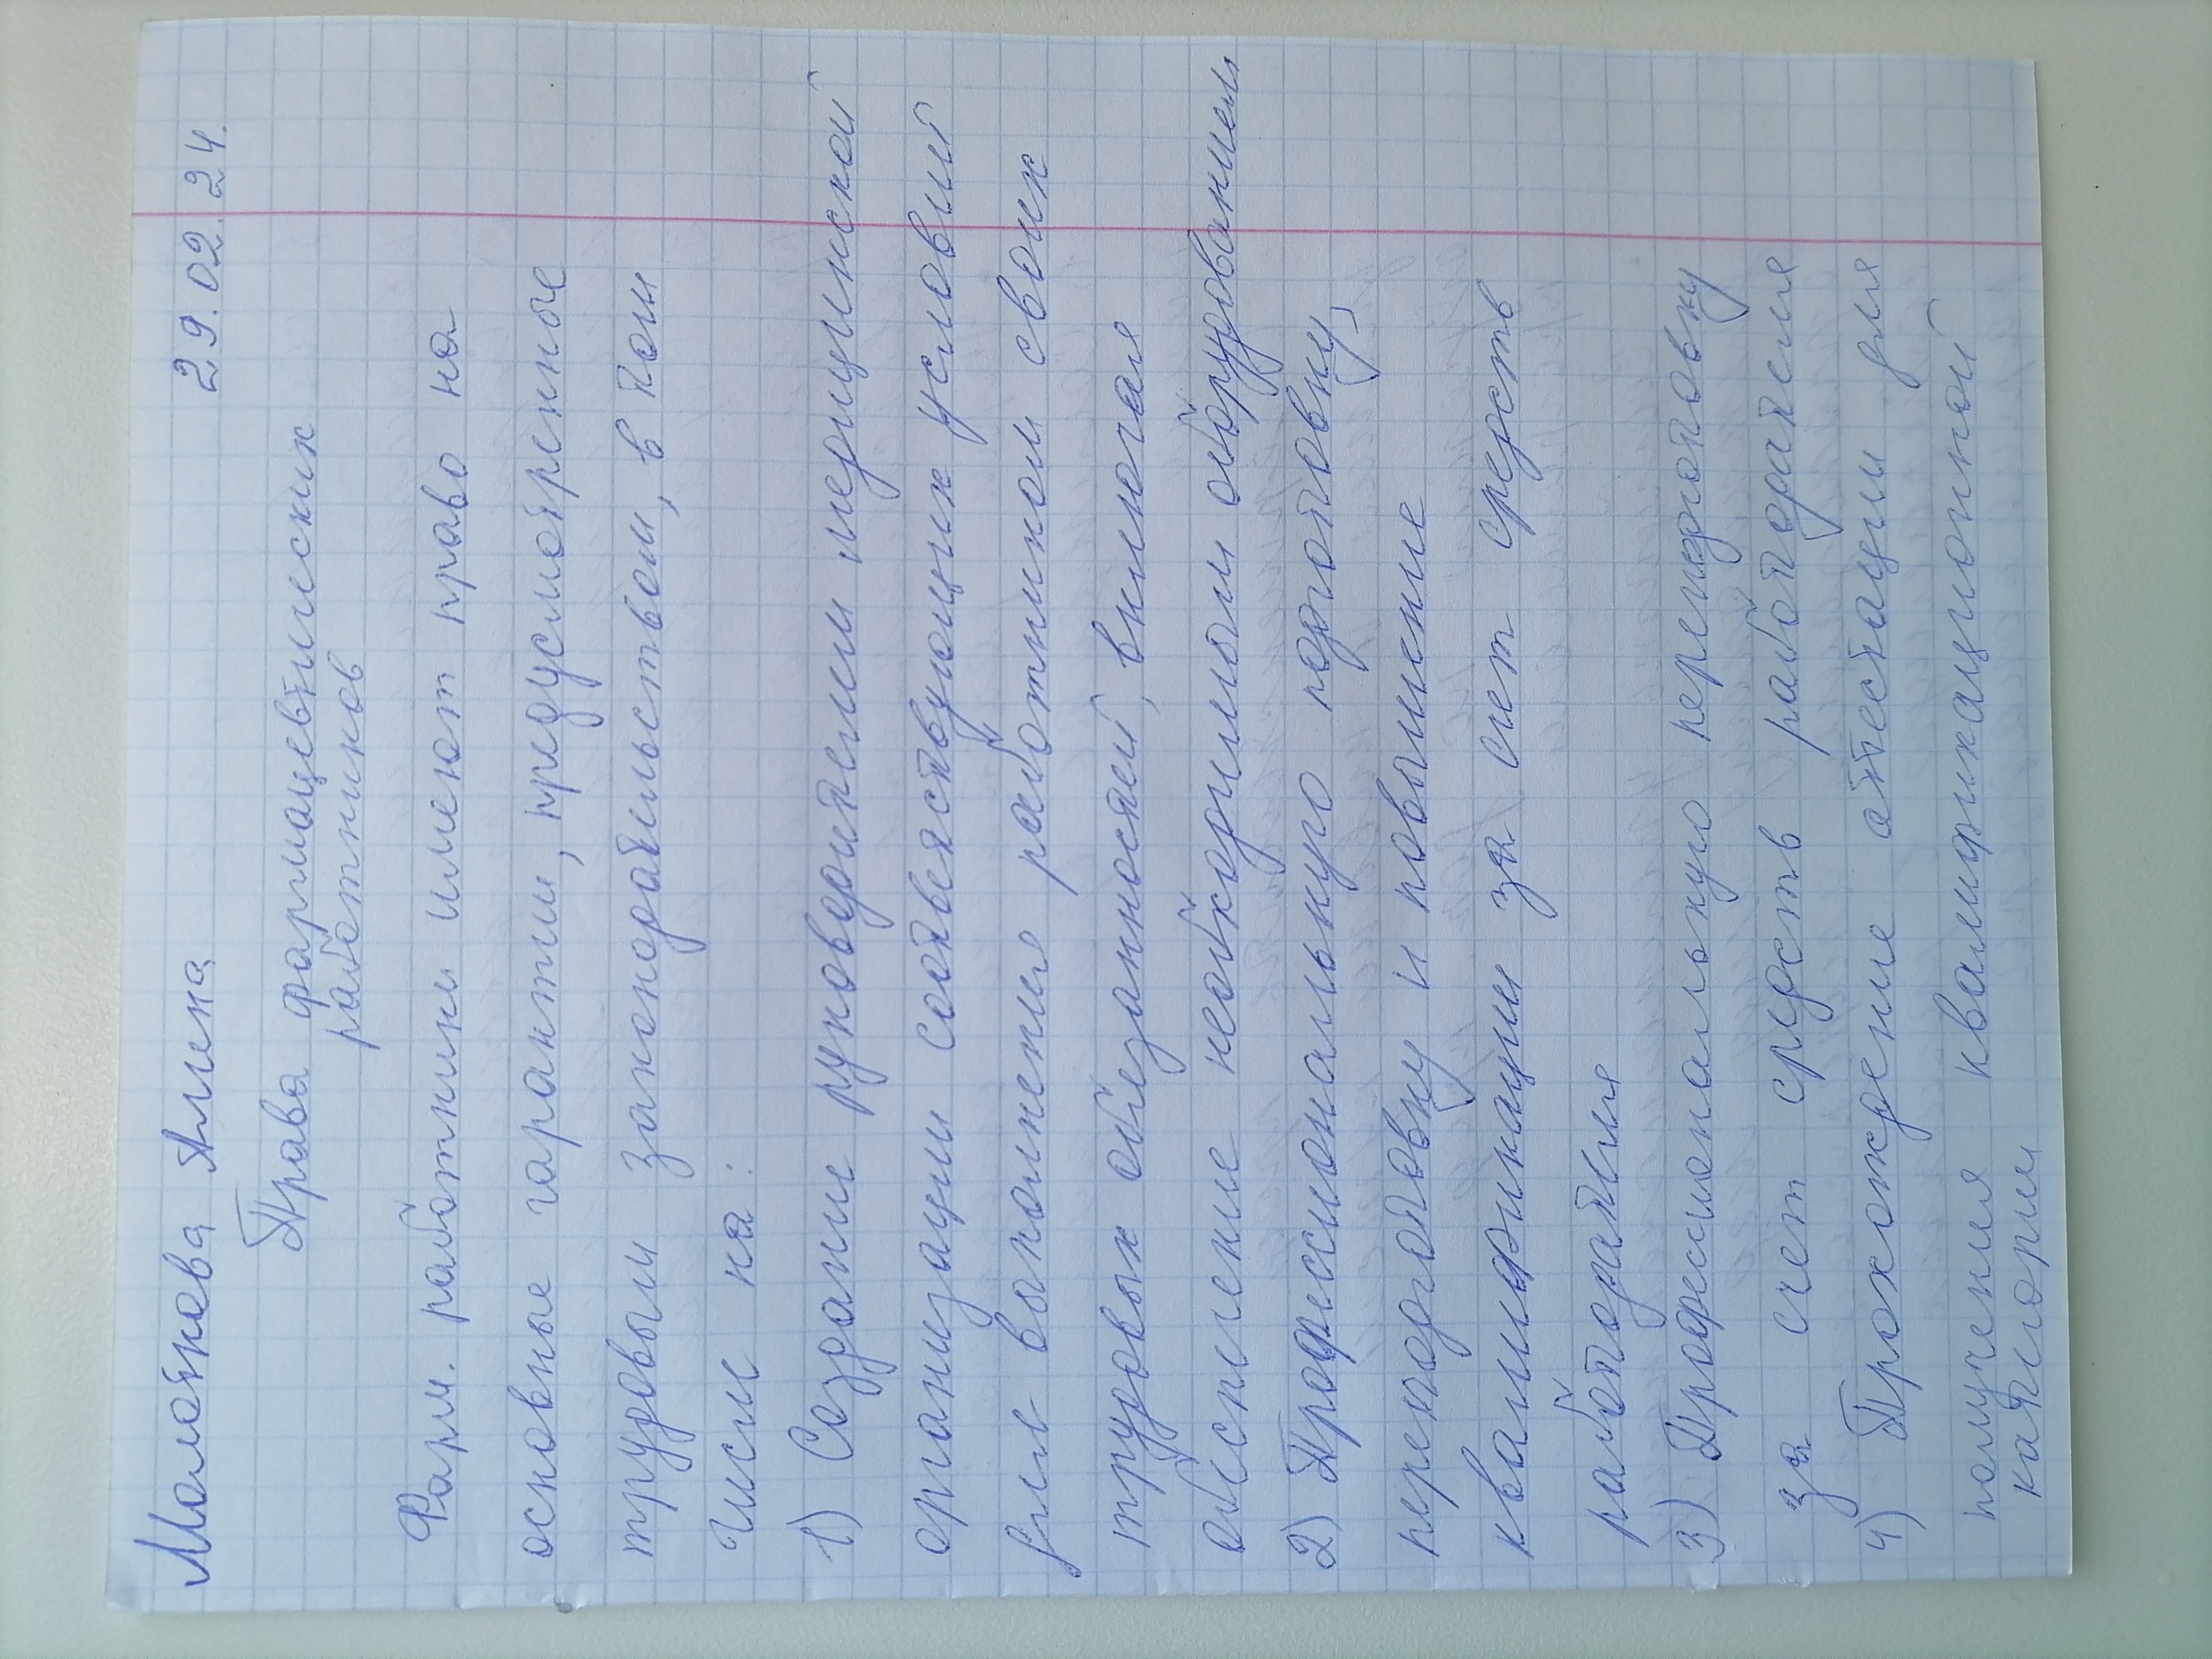 Молоткова Алина 29.02.24.
Права фармацевтических
работников
Фарм. работники имеют право на
основные гарантии, предусмотренные
трудовым законодательством, в том
числе на:
1) Создание руководителем медицинской
организации соответствующих условий
для выполнения работником своих
трудовых обязанностей, включая
обеспечение необходимым оборудованием
2) Профессиональную подготовку,
переподготовку и повышение
квалификации за счет средств
работодателя
3) Профессиональную переподготовку
за счет средств работодателя
4) Прохождение аттестации для
получения квалификационной
категории